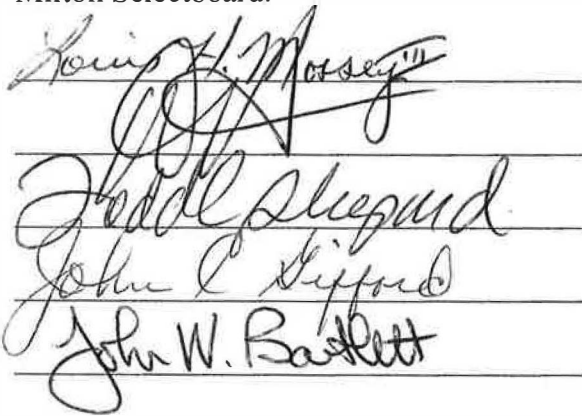 Milton Selectboard:
Louis H. Mossey III
Shepard
John C Gifford
John W. Bartlett